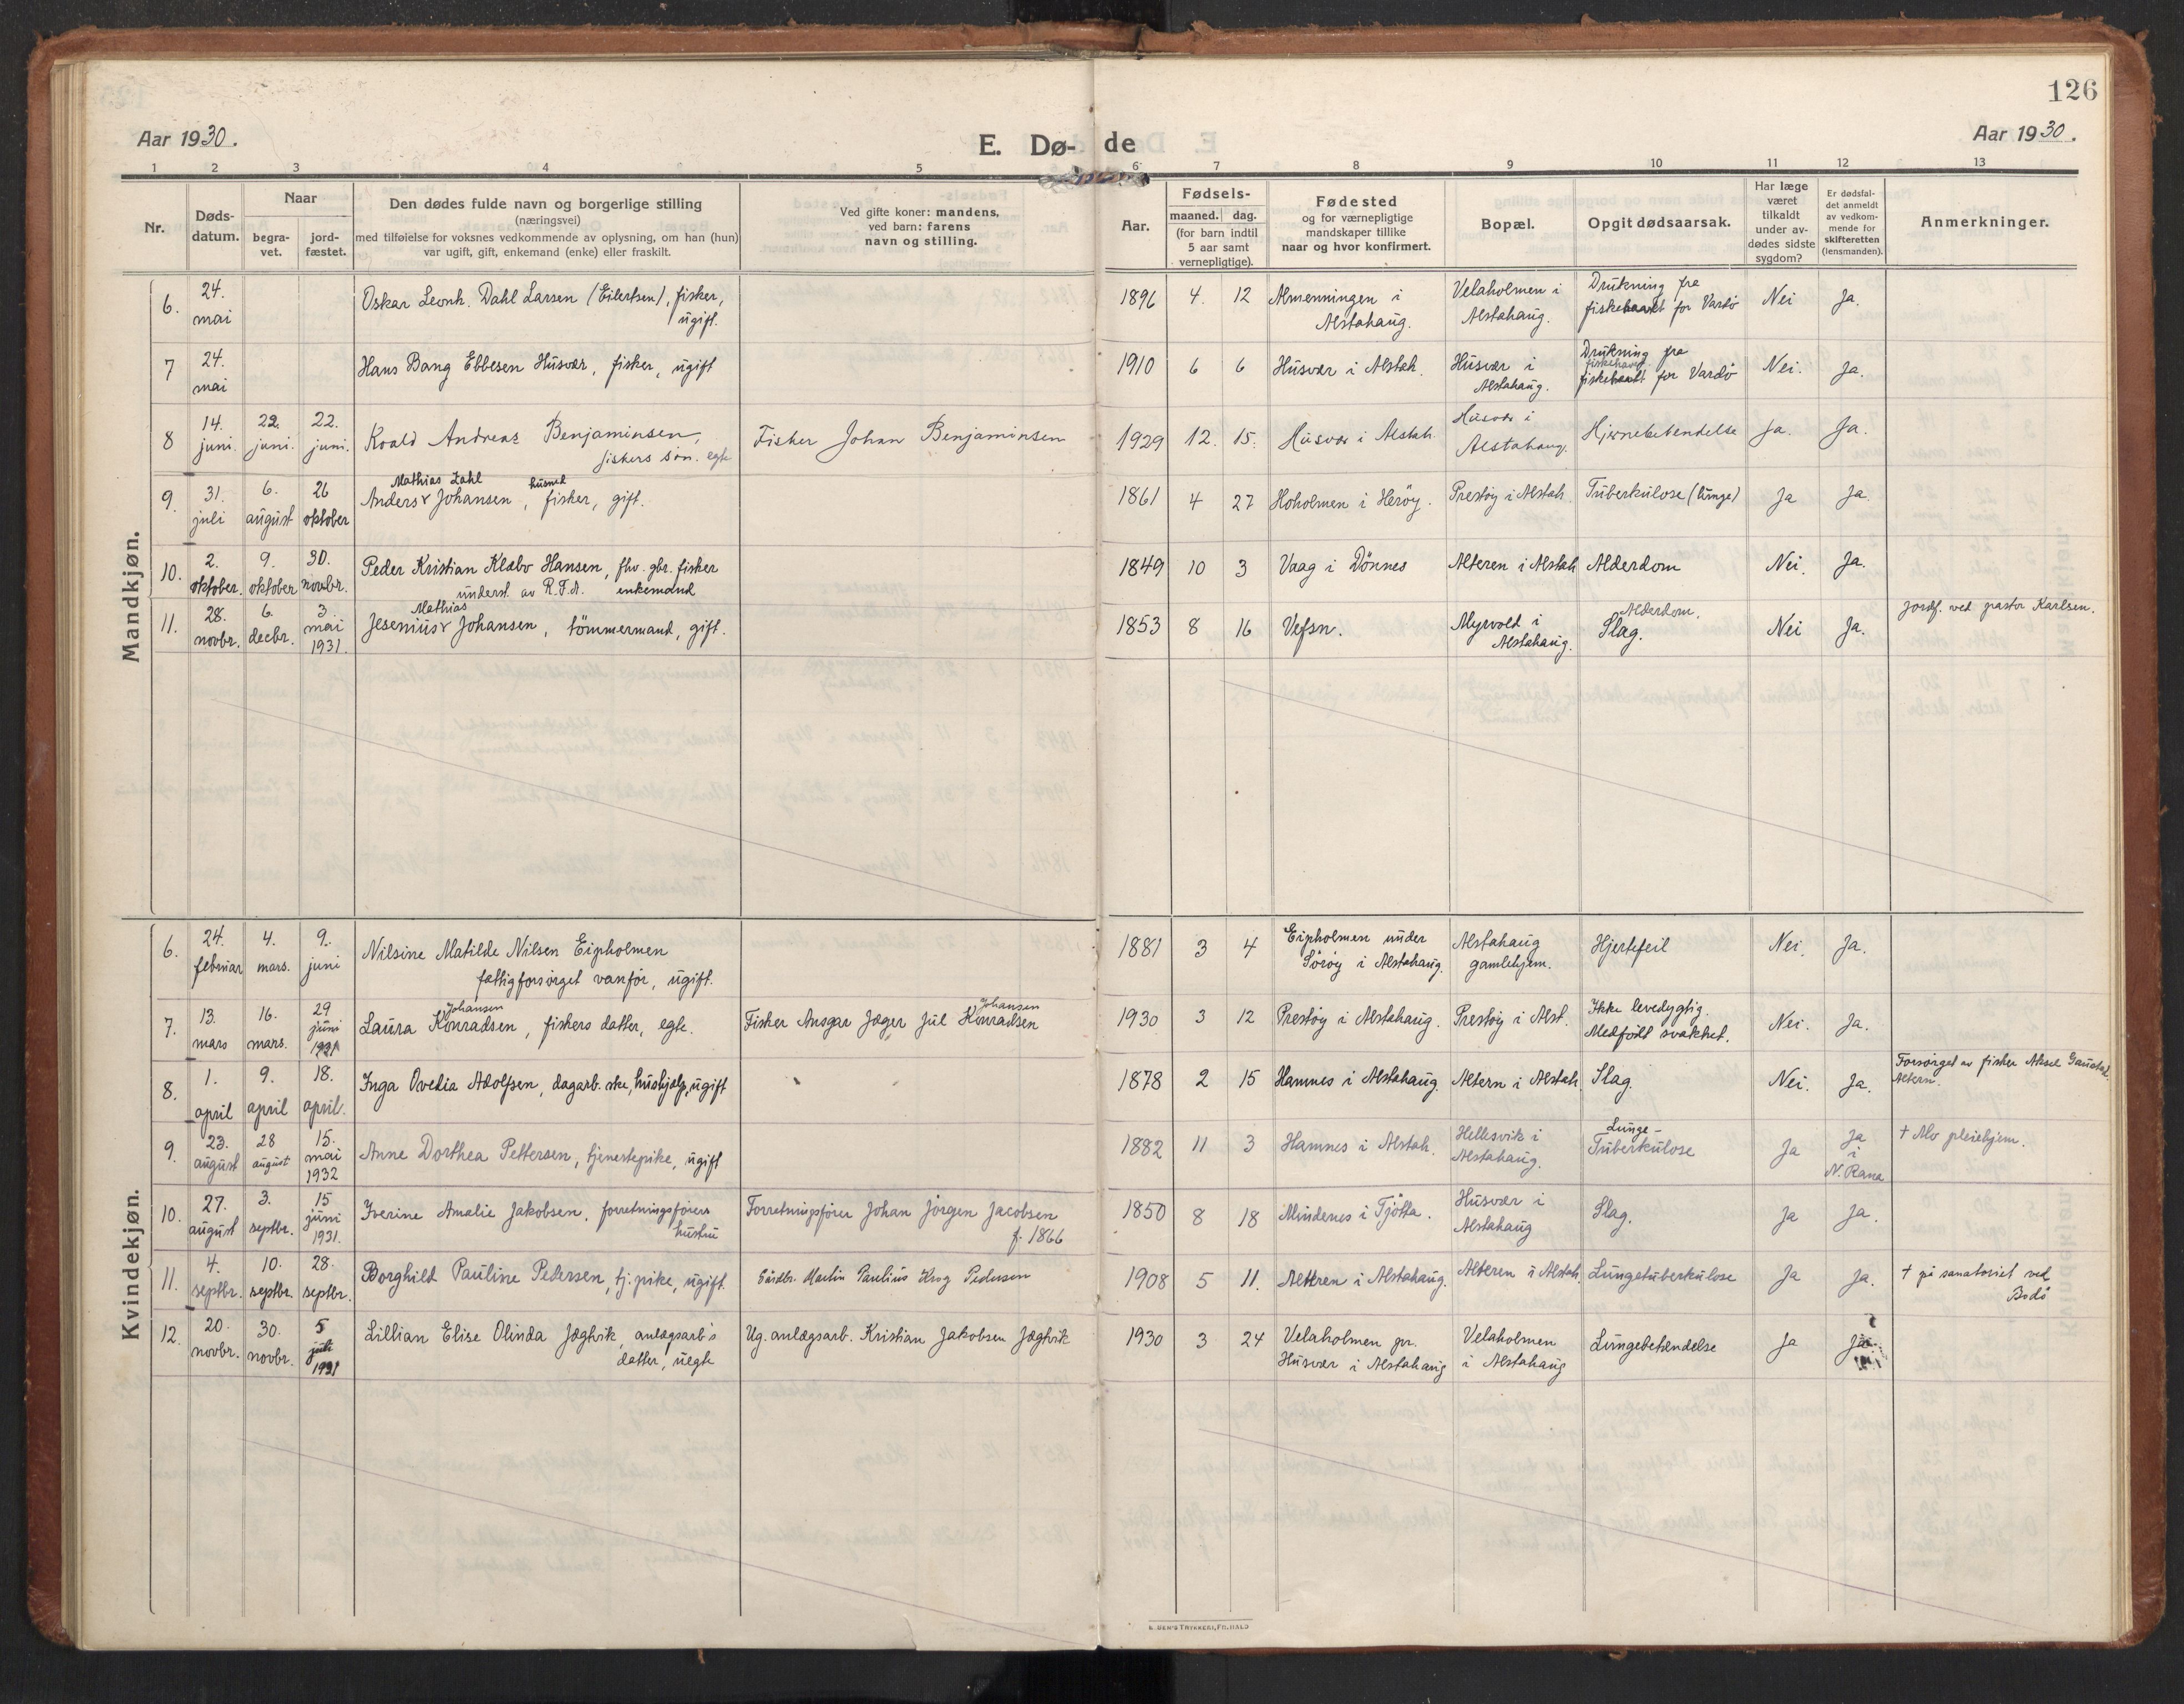 126
Aar 1930.
E. Dø-
de
Aar 1930.
1 2 3 4 5 6 7 8 9 10 11 12 13
Nr.
Døds-
datum.
Naar
begra-
vet.
jord-
fæstet.
Den dødes fulde navn og borgerlige stilling
(næringsvei)
med tilføielse for voksnes vedkommende av oplysning, om han (hun)
var ugift, gift, enkemand (enke) eller fraskilt.
Ved gifte koner: mandens,
ved barn: farens
navn og stilling.
Aar.
Fødsels-
maaned. dag.
(for barn indtil
5 aar samt
vernepligtige).
Fødested
og for værnepligtige
mandskaper tillike
naar og hvor konfirmert.
Bopæl.
Opgit dødsaarsak.
Har læge
været
tilkaldt
under av-
dødes sidste
sygdom?
Er dødsfal-
det anmeldt
av vedkom-
mende for
skifteretten
(lensmanden).
Anmerkninger.
Mandkjøn.
6.
24.
mai
Oskar Leonh. Dahl Larsen (Eilertsen), fisker,
ugift.
1896 4. 12
Almenningen i
Alstahaug.
Velaholmen i
Alstahaug.
Drukning fra
fiskebaat for Vardö
Nei Ja.
7
24.
mai
Hans Bang Ebbesen Husvær, fisker, ugift
1910 6 6
Husvær i Alstah.
Husvær i
Alstahaug.
Drukning fra
fiskebaat for Vardö
Nei. Ja.
8
14.
juni.
22.
juni.
22.
juni.
Roald Andreas Benjaminsen,
fiskers søn. egte
Fisker Johan Benjaminsen
1929 12. 15.
Husvær i Alstah.
Husvær i
Alstahaug.
Hjernebetendelse
Ja. Ja.
9.
31.
juli
6.
august
26
oktober
Mathias Zahl husmd
Anders Johansen, fisker, gift.
1861 4 27
Hoholmen i Herøy.
Prestöy i Alstah.
Tuberkulose (lunge)
Ja Ja.
10.
2.
oktober.
9.
oktober
30.
novbr.
Peder Kristian Klæbo Hansen, fhv. gbr. fisker
underst. av R.F.A. enkemand
1849 10 3
Vaag i Dönnes
Alteren i Alstah
Alderdom
Nei. Ja.
11.
28.
novbr.
6.
decbr.
3.
mai
1931.
Mathias
Jesenius Johansen, tömmermand, gift.
1853 8 16
Vefsn.
Myrvold i
Alstahaug.
Alderdom.
Slag.
Nei Ja.
Jordf. ved pastor Karlsen.
Kvindekjøn.
6.
24.
februar
4.
mars.
9.
juni
Nilsine Matilde Nilsen Eipholmen
fattigforsörget vanför, ugift.
1881 3 4
Eipholmen under
Söröy i Alstahaug.
Alstahaug
gamlehjem.
Hjertefeil
Nei. Ja.
7.
13.
mars
16.
mars.
29
juni
1931
Johansen
Laura Konradsen, fiskers datter, egte.
Johansen
Fisker Ansgar Jæger Jul Konradsen
1930 3 12
Prestöy i Alstahaug.
Prestöy i Alst.
Ikke levedygtig.
Medfödt svakhet.
Nei. Ja.
8.
1.
april
9.
april
18.
april.
Inga Ovedia Adolfsen, dagarb.ske, hushjelp, ugift
1878 2 15
Hamnes i Alstahaug.
Altern i Alstah
Slag.
Nei. Ja.
Forsörget av fisker Aksel
Altern.
9.
23.
august
28
august
15.
mai
1932
Anne Dorthea Pettersen, tjenestepike, ugift
1882 11 3
Hamnes i Alstah.
Hellesvik i
Alstahaug.
Lunge-
Tuberkulose
Ja
Ja
i
N. Rana
† Mo pleiehjem.
10.
27.
august
3.
septbr.
15
juni
1931.
Iverine Amalie Jakobsen, forretningsförers
hustru
Forretningsförer Johan Jörgen Jacobsen
f. 1866
1850 8 18
Mindenes i Tjötta.
Husvær i
Alstahaug
Slag.
Ja Ja.
11.
4.
septbr.
10.
septbr.
28.
septbr.
Borghild Pauline Pedersen, tj.pike, ugift.
Gårdbr. Martin Paulius Krog Pedersen
1908 5 11.
Alteren i Alstahaug.
Alteren i Alstah.
Lungetuberkulose
Ja Ja.
† på sanatoriet ved
Bodö
12.
20.
novbr.
30.
novbr.
5
juli
1931
Lillian Elise Olinda Jægtvik, anlægsarb's
datter, uegte
Ug. anlægsarb. Kristian Jakobsen Jægtvik
1930 3 24
Velaholmen pr.
Husvær i Alstahaug
Velaholmen
i Alstahaug
Lungebetendelse
Ja Ja.
E. SEM'S TRYKKERI, FR.HALD